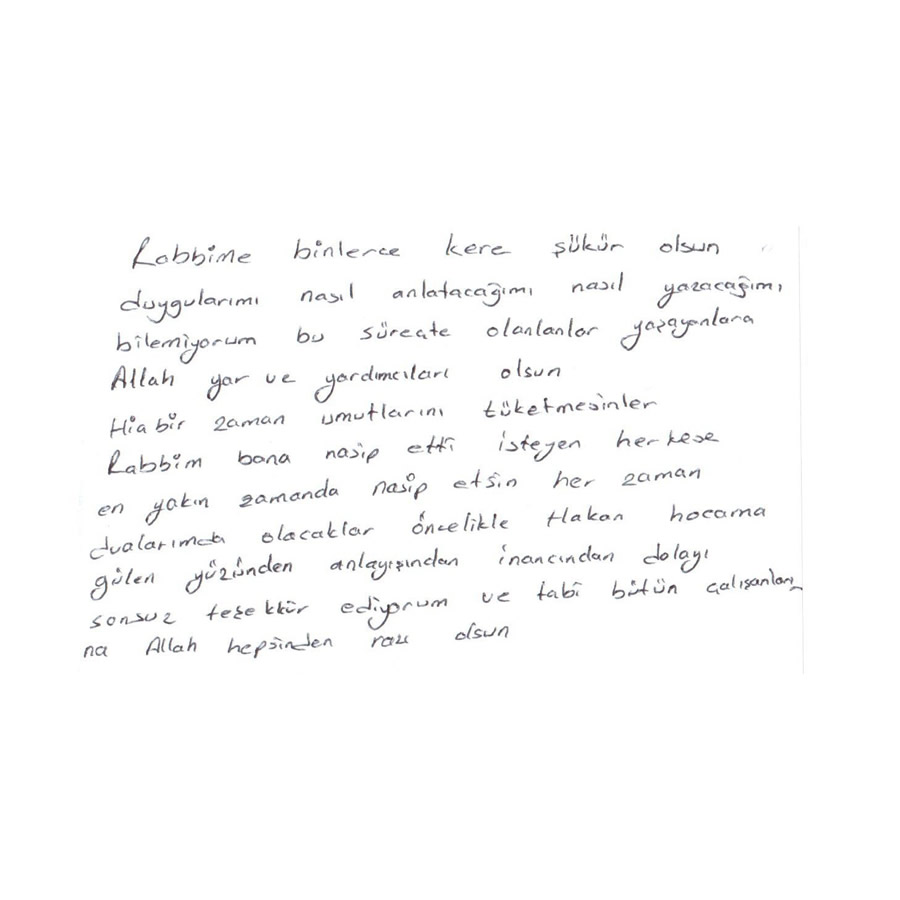 Rabbime binlerce kere şükür olsun
duygularımı nasıl anlatacağımı nasıl yazacağımı
bilemiyorum bu süreçte olanlanlar yaşayanlara
Allah yar ve yardımcıları olsun
Hiçbir zaman umutlarını tüketmesinler
Rabbim bana nasip etti isteyen herkese
en yakın zamanda nasip etsin her zaman
dualarımda olacaklar öncelikle Hakan hocama
gülen yüzünden anlayışından inancından dolayı
sonsuz teşekkür ediyorum ve tabi bütün çalışanları
na Allah hepsinden razı olsun